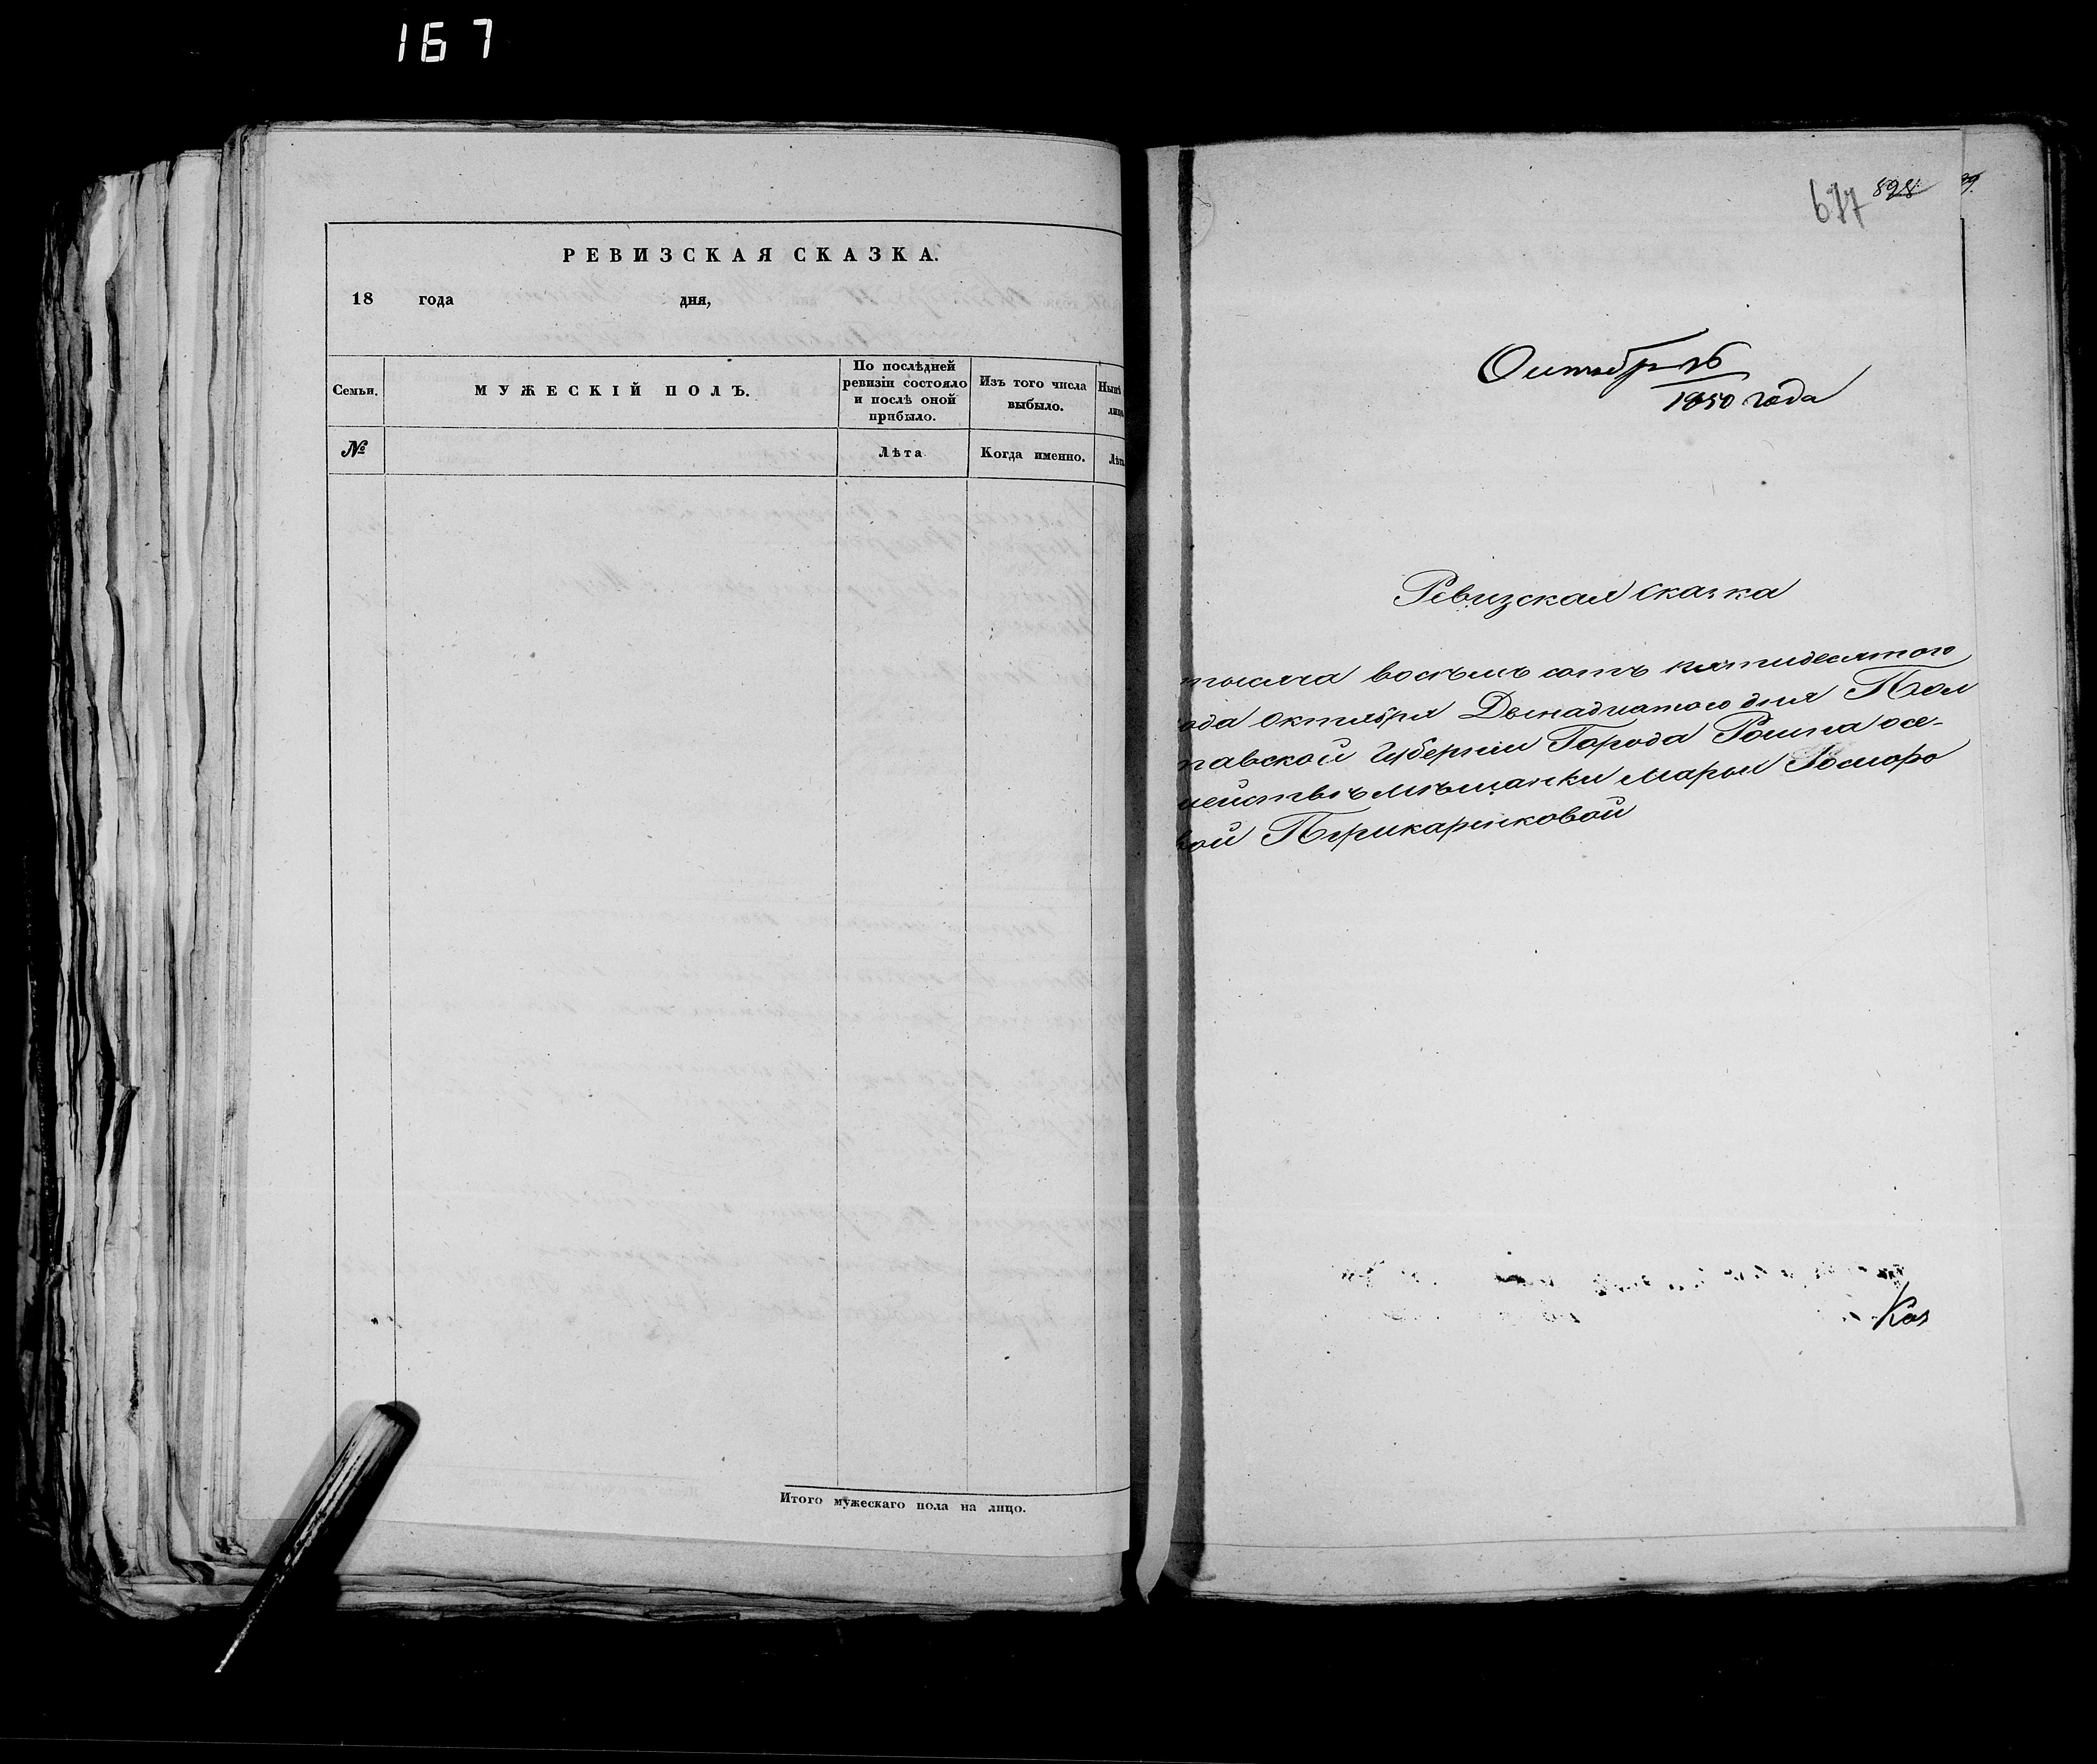 167
РЕВИЗСКАЯ СКАЗКА.
18 года дня,
Семьи.
МУЖЕСКІЙ ПОЛЪ.
По послѣдней ревизіи состояло и послѣ оной прибыло.
Изъ того числа выбыло.
Нынѣ
лицо
№
Лѣта
Когда именно.
Лѣта
Итого мужескаго пола на лицо.
677 898
Октябрь
1850 года
Ревизская сказка
тысяча восъемъ сотъ пятидесятого
ода Октября Двенадцатого дня Пол
тавской Губерніи Города Ромна осе-
мѣщанки Марьи
вой